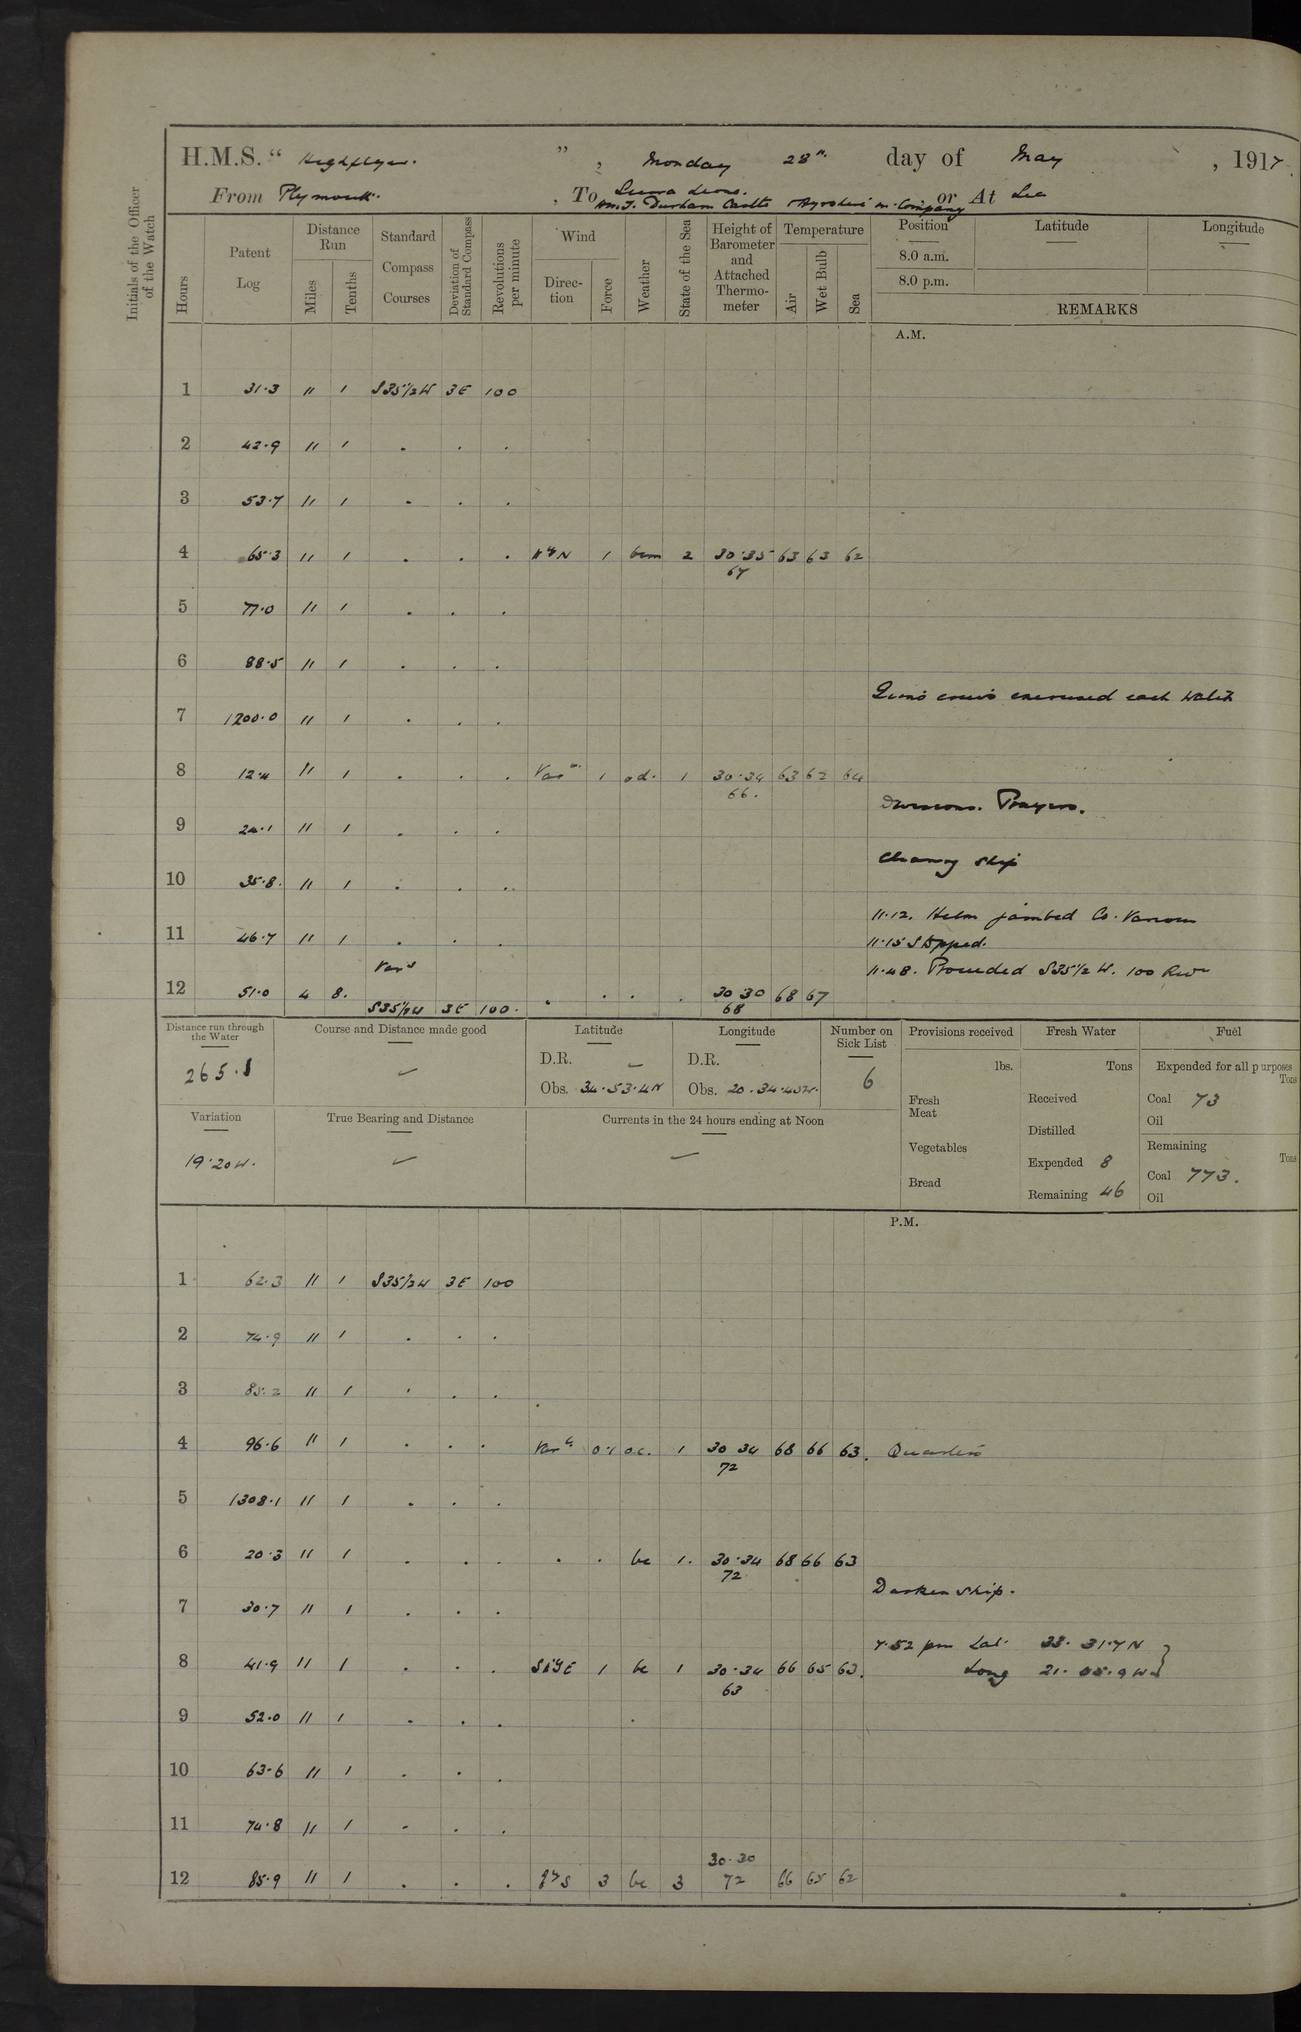 H.M.S. " Highflyer. " , Monday 28th day of May , 1917
From Plymouth. , To Sierra Leone. or At Sea
H.M.T. Durham Castle & Ayrshire in Company
Initials of the Officer of the Watch
Hours
Patent Log
Distance Run
Miles
Tenths
Standard Compass Courses
Deviation of Standard Compass
Revolutions per minute
Wind
Direction
Force
Weather
State of the Sea
Height of Barometer and Attached Thermometer
Temperature
Air
Wet Bulb
Sea
Position
8.0 a.m.
8.0 p.m.
Latitude
Longitude
REMARKS
A.M.
1 31.3 11 1 S35½W 3E 100
2 42.9 11 1 . . .
3 53.7 11 1 . . .
4 65.3 11 1 . . . 1 bcm 2 30.35 63 63 62
67
5 77.0 11 1 . . .
6 88.5 11 1 . . .
Guns crews exercised each watch
7 1200.0 11 1 . . .
8 12.4 11 1 . . . Var 1 od. 1 30.34 63 62 64
66.
Divisions. Prayers.
9 24.1 11 1 . . .
Cleaning ship
10 35.8. 11 1 . . .
11.12. Helm jambed Co. Various
11 46.7 11 1 . . .
11.15 Stopped.
Vars
11.48. Proceeded S35½ W. 100 Revs
12 51.0 4 8. S35½W 3E 100. . . . . 30 30 68 67
68
Distance run through the Water
265.1
Course and Distance made good
Latitude
D.R.
Obs. 34.53.4N
Longitude
D.R.
Obs. 20.34.45W.
Number on Sick List
6
Provisions received
lbs.
Fresh Meat
Vegetables
Bread
Fresh Water
Tons
Received
Distilled
Expended 8
Remaining 46
Fuel
Expended for all purposes
Tons
Coal 73
Oil
Remaining
Tons
Coal 773.
Oil
Variation
19.20W.
True Bearing and Distance
Currents in the 24 hours ending at Noon
P.M.
1 62.3 11 1 S35½W 3E 100
2 74.9 11 1 . . .
3 85.2 11 1 . . .
4 96.6 11 1 . . . Var 0.1 oc. 1 30 34 68 66 63. Quarters
72
5 1308.1 11 1 . . .
6 20.3 11 1 . . . . . bc 1. 30.34 68 66 63
72
Darken Ship.
7 30.7 11 1 . . .
7.52 pm Lat. 33.31.7N
8 41.9 11 1 . . . SbyE 1 bc 1 30.34 66 65 63.
63
Long 21.05.9W
9 52.0 11 1 . . .
10 63.6 11 1 . . .
11 74.8 11 1 . . .
30.30
12 85.9 11 1 . . . 3 bc 3 72 66 65 62